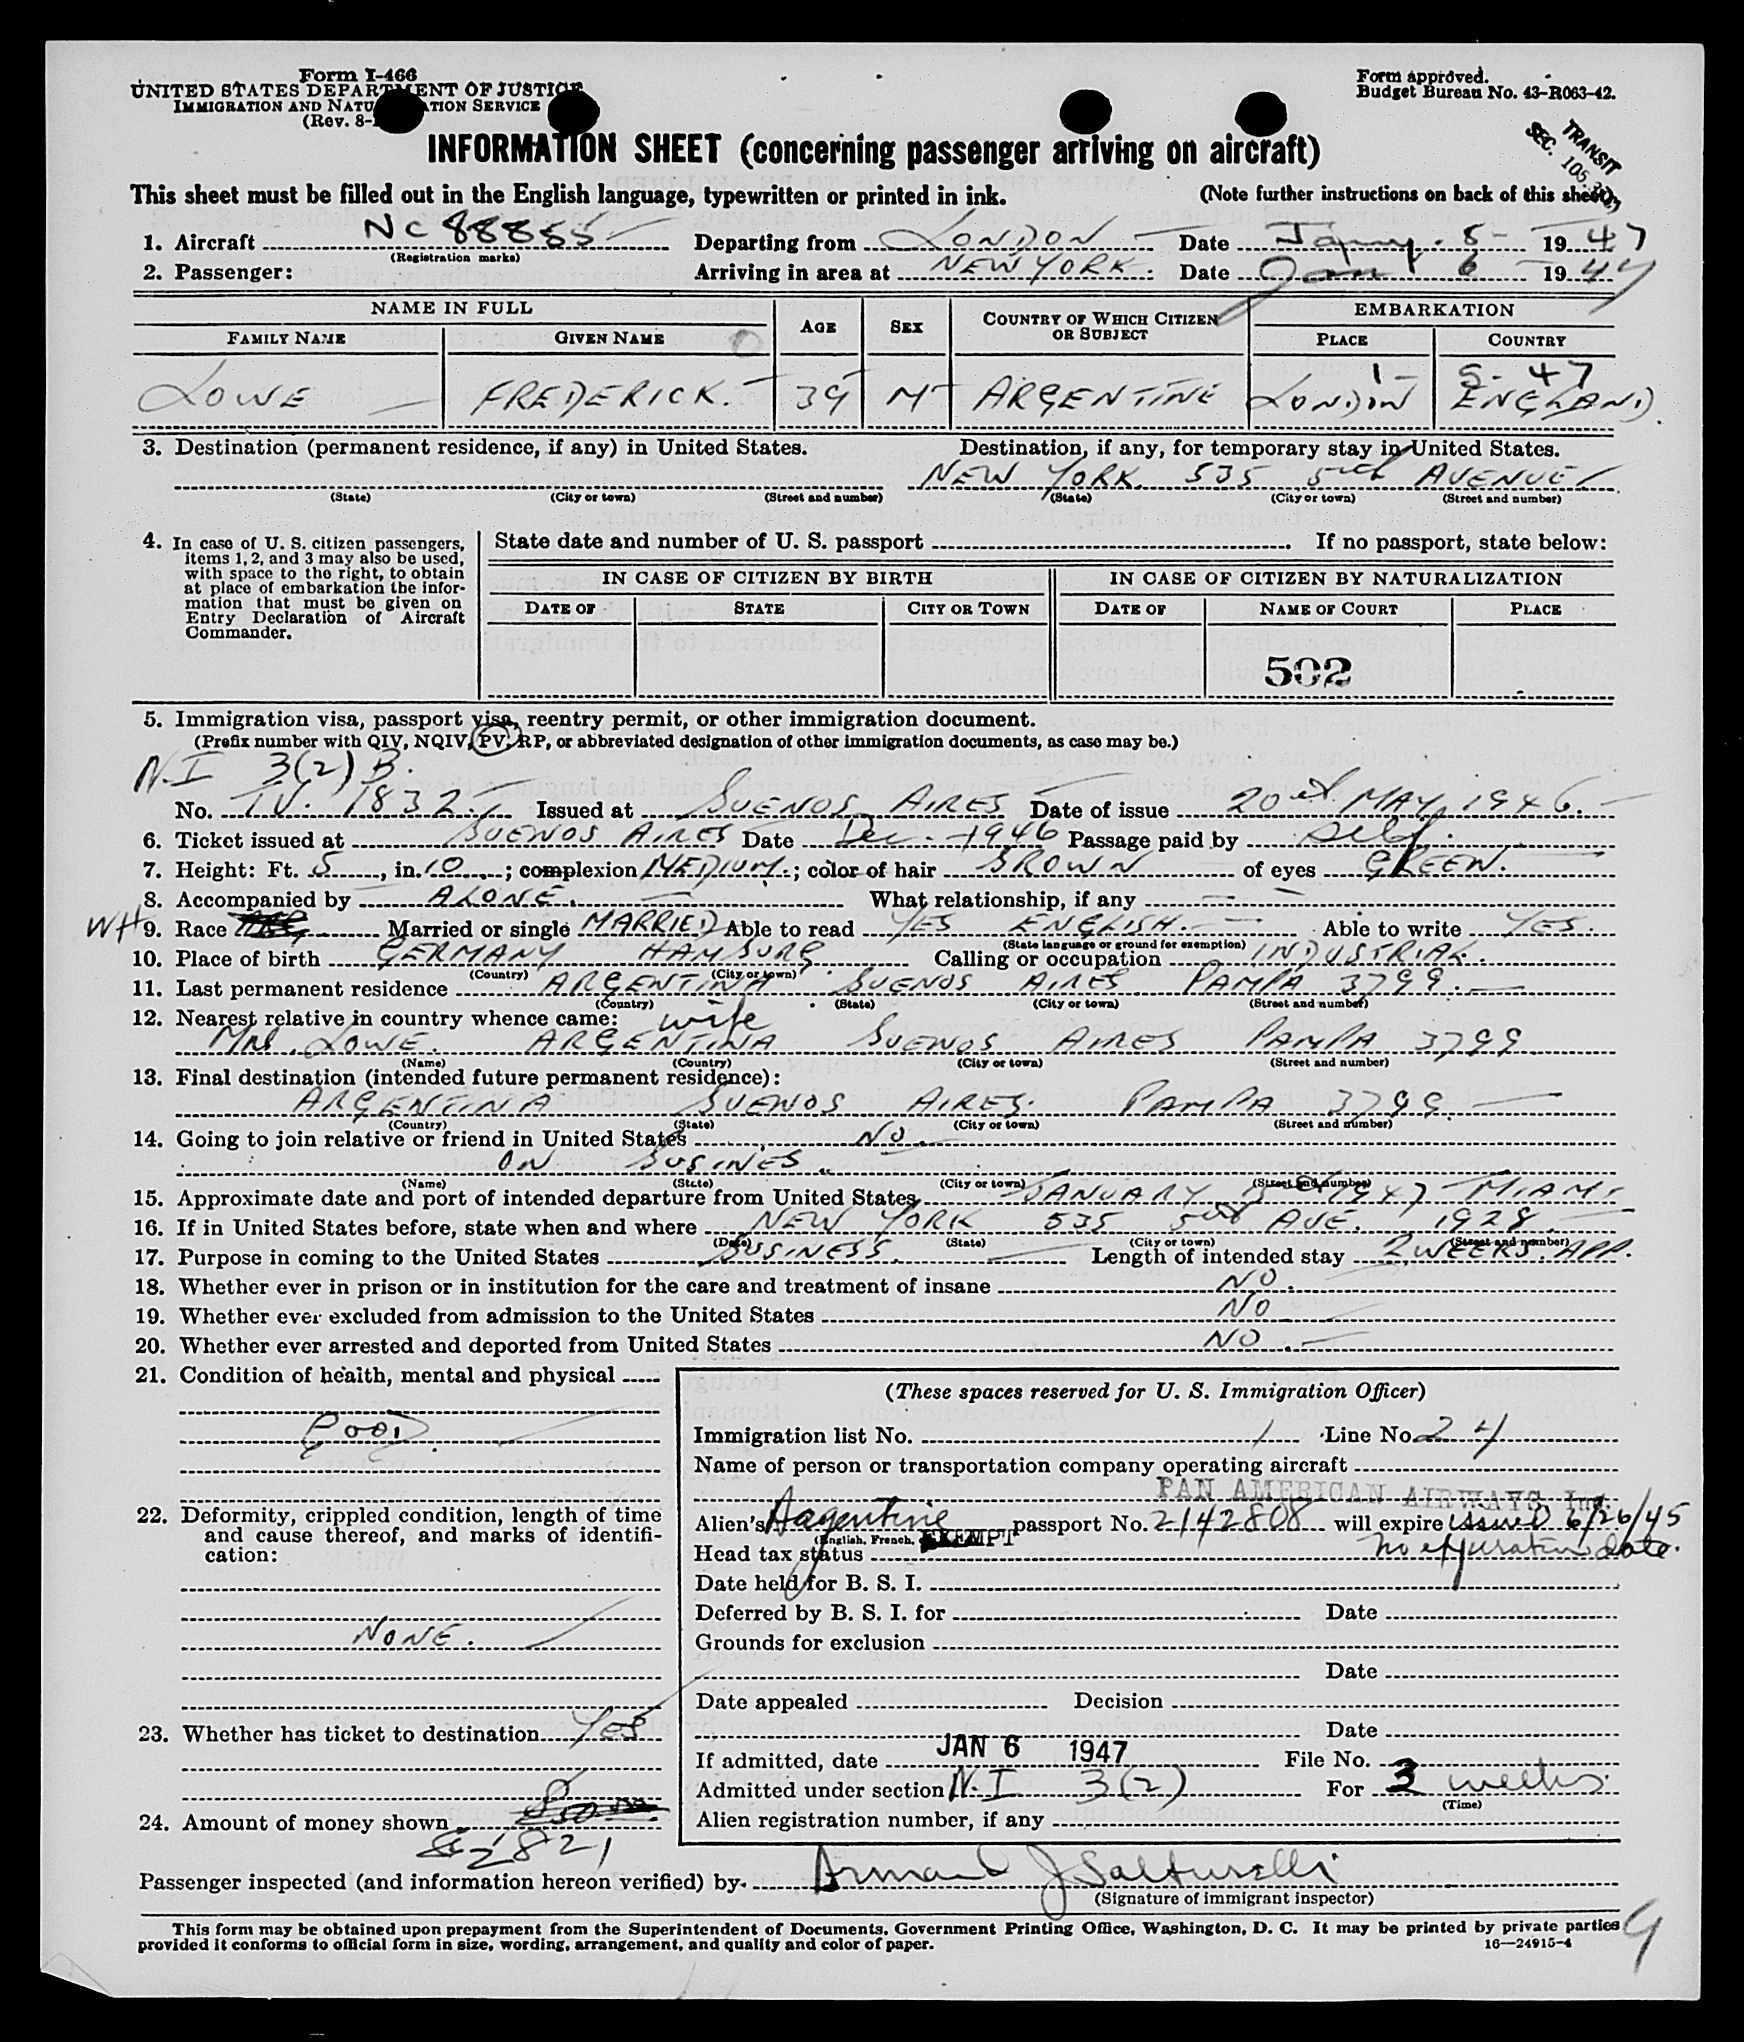 Form I-466
UNITED STATES DEPARTMENT OF JUSTICE
IMMIGRATION AND NATURALIZATION SERVICE
(Rev. 8-
Form approved.
Budget Bureau No. 43-R063-42.
TRANSIT
SEC. 105.3
INFORMATION SHEET (concerning passenger arriving on aircraft)
This sheet must be filled out in the English language, typewritten or printed in ink. (Note further instructions on back of this sheet.)
1. Aircraft NC 88855 Departing from LONDON Date Jany. 5 1947
(Registration marks)
2. Passenger: Arriving in area at NEW YORK. Date Jan 6 1947
NAME IN FULL AGE SEX COUNTRY OF WHICH CITIZEN OR SUBJECT EMBARKATION
FAMILY NAME GIVEN NAME PLACE COUNTRY
1-5-47
LOWE FREDERICK. 39 M ARGENTINE LONDON ENGLAND.
3. Destination (permanent residence, if any) in United States. Destination, if any, for temporary stay in United States.
NEW YORK. 535 5th AVENUE
(State) (City or town) (Street and number) (State) (City or town) (Street and number)
4. In case of U. S. citizen passengers, items 1, 2, and 3 may also be used, with space to the right, to obtain at place of embarkation the information that must be given on Entry Declaration of Aircraft Commander.
State date and number of U. S. passport If no passport, state below:
IN CASE OF CITIZEN BY BIRTH IN CASE OF CITIZEN BY NATURALIZATION
DATE OF STATE CITY OR TOWN DATE OF NAME OF COURT PLACE
502
5. Immigration visa, passport visa, reentry permit, or other immigration document.
(Prefix number with QIV, NQIV, PV, RP, or abbreviated designation of other immigration documents, as case may be.)
N.I 3(2) B.
No. T.V. 1832. Issued at BUENOS AIRES Date of issue 20th MAY, 1946.
6. Ticket issued at BUENOS AIRES Date Dec. 1946 Passage paid by Self.
7. Height: Ft. 5, in. 10; complexion MEDIUM.; color of hair BROWN of eyes GREEN.
8. Accompanied by ALONE. What relationship, if any
WH 9. Race Married or single MARRIED Able to read YES ENGLISH. Able to write YES.
(State language or ground for exemption)
10. Place of birth GERMANY HAMBURG Calling or occupation INDUSTRIAL.
(Country) (City or town)
11. Last permanent residence ARGENTINA BUENOS AIRES PAMPA 3799.
(Country) (State) (City or town) (Street and number)
12. Nearest relative in country whence came: wife
Mrs. LOWE. ARGENTINA BUENOS AIRES PAMPA 3799
(Name) (Country) (City or town) (Street and number)
13. Final destination (intended future permanent residence):
ARGENTINA BUENOS AIRES. PAMPA 3799.
(Country) (State) (City or town) (Street and number)
14. Going to join relative or friend in United States NO.
ON BUSINES.
(Name) (State) (City or town) (Street and number)
15. Approximate date and port of intended departure from United States JANUARY 1947 MIAMI
16. If in United States before, state when and where NEW YORK 535 5th AVE. 1928.
(Date) (State) (City or town) (Street and number)
17. Purpose in coming to the United States BUSINESS. Length of intended stay 2 WEEKS. APP.
18. Whether ever in prison or in institution for the care and treatment of insane NO.
19. Whether ever excluded from admission to the United States NO
20. Whether ever arrested and deported from United States NO.
21. Condition of health, mental and physical
GOOD.
22. Deformity, crippled condition, length of time and cause thereof, and marks of identification:
NONE.
23. Whether has ticket to destination YES
24. Amount of money shown
(These spaces reserved for U. S. Immigration Officer)
Immigration list No. 1 Line No. 24
Name of person or transportation company operating aircraft
PAN AMERICAN AIRWAYS Inc.
Alien's Argentine passport No. 2142808 will expire issued 6/26/45
(English, French,
Head tax status EXEMPT no expiration date.
Date held for B. S. I.
Deferred by B. S. I. for Date
Grounds for exclusion
Date
Date appealed Decision
Date
If admitted, date JAN 6 1947 File No.
Admitted under section N.I 3(2) For 3 weeks.
(Time)
Alien registration number, if any
Passenger inspected (and information hereon verified) by
(Signature of immigrant inspector)
This form may be obtained upon prepayment from the Superintendent of Documents, Government Printing Office, Washington, D. C. It may be printed by private parties
provided it conforms to official form in size, wording, arrangement, and quality and color of paper. 16—24915-4
9